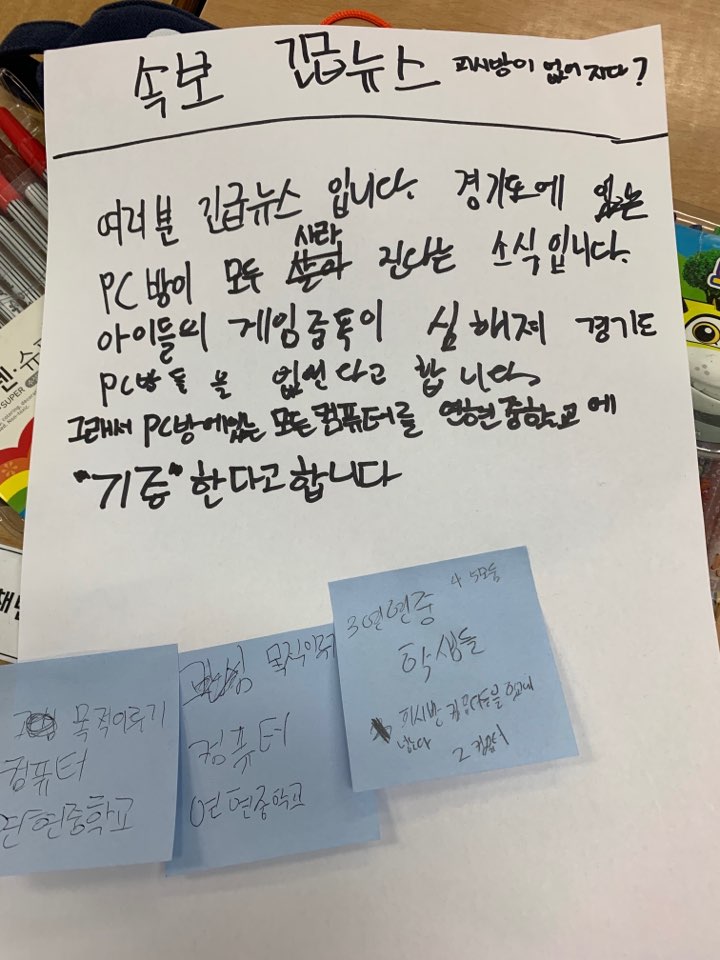 속보 긴급뉴스 피시방이 없어지다?
여러분 긴급뉴스 입니다. 경기도에 있는
사라
PC방이 모두 진다는 소식입니다.
아이들의 게임중독이 심해져 경기도
PC방들을 없앤다고 합니다.
그래서 PC방에있는 모든컴퓨터를 연현중학교에
"기증"한다고합니다
4 5모둠
3연현중
학생들
피시방
2 컴퓨터
관심 목적이루기
컴퓨터
연현중학교
목적이루기
컴퓨터
연현중학교
SUPER